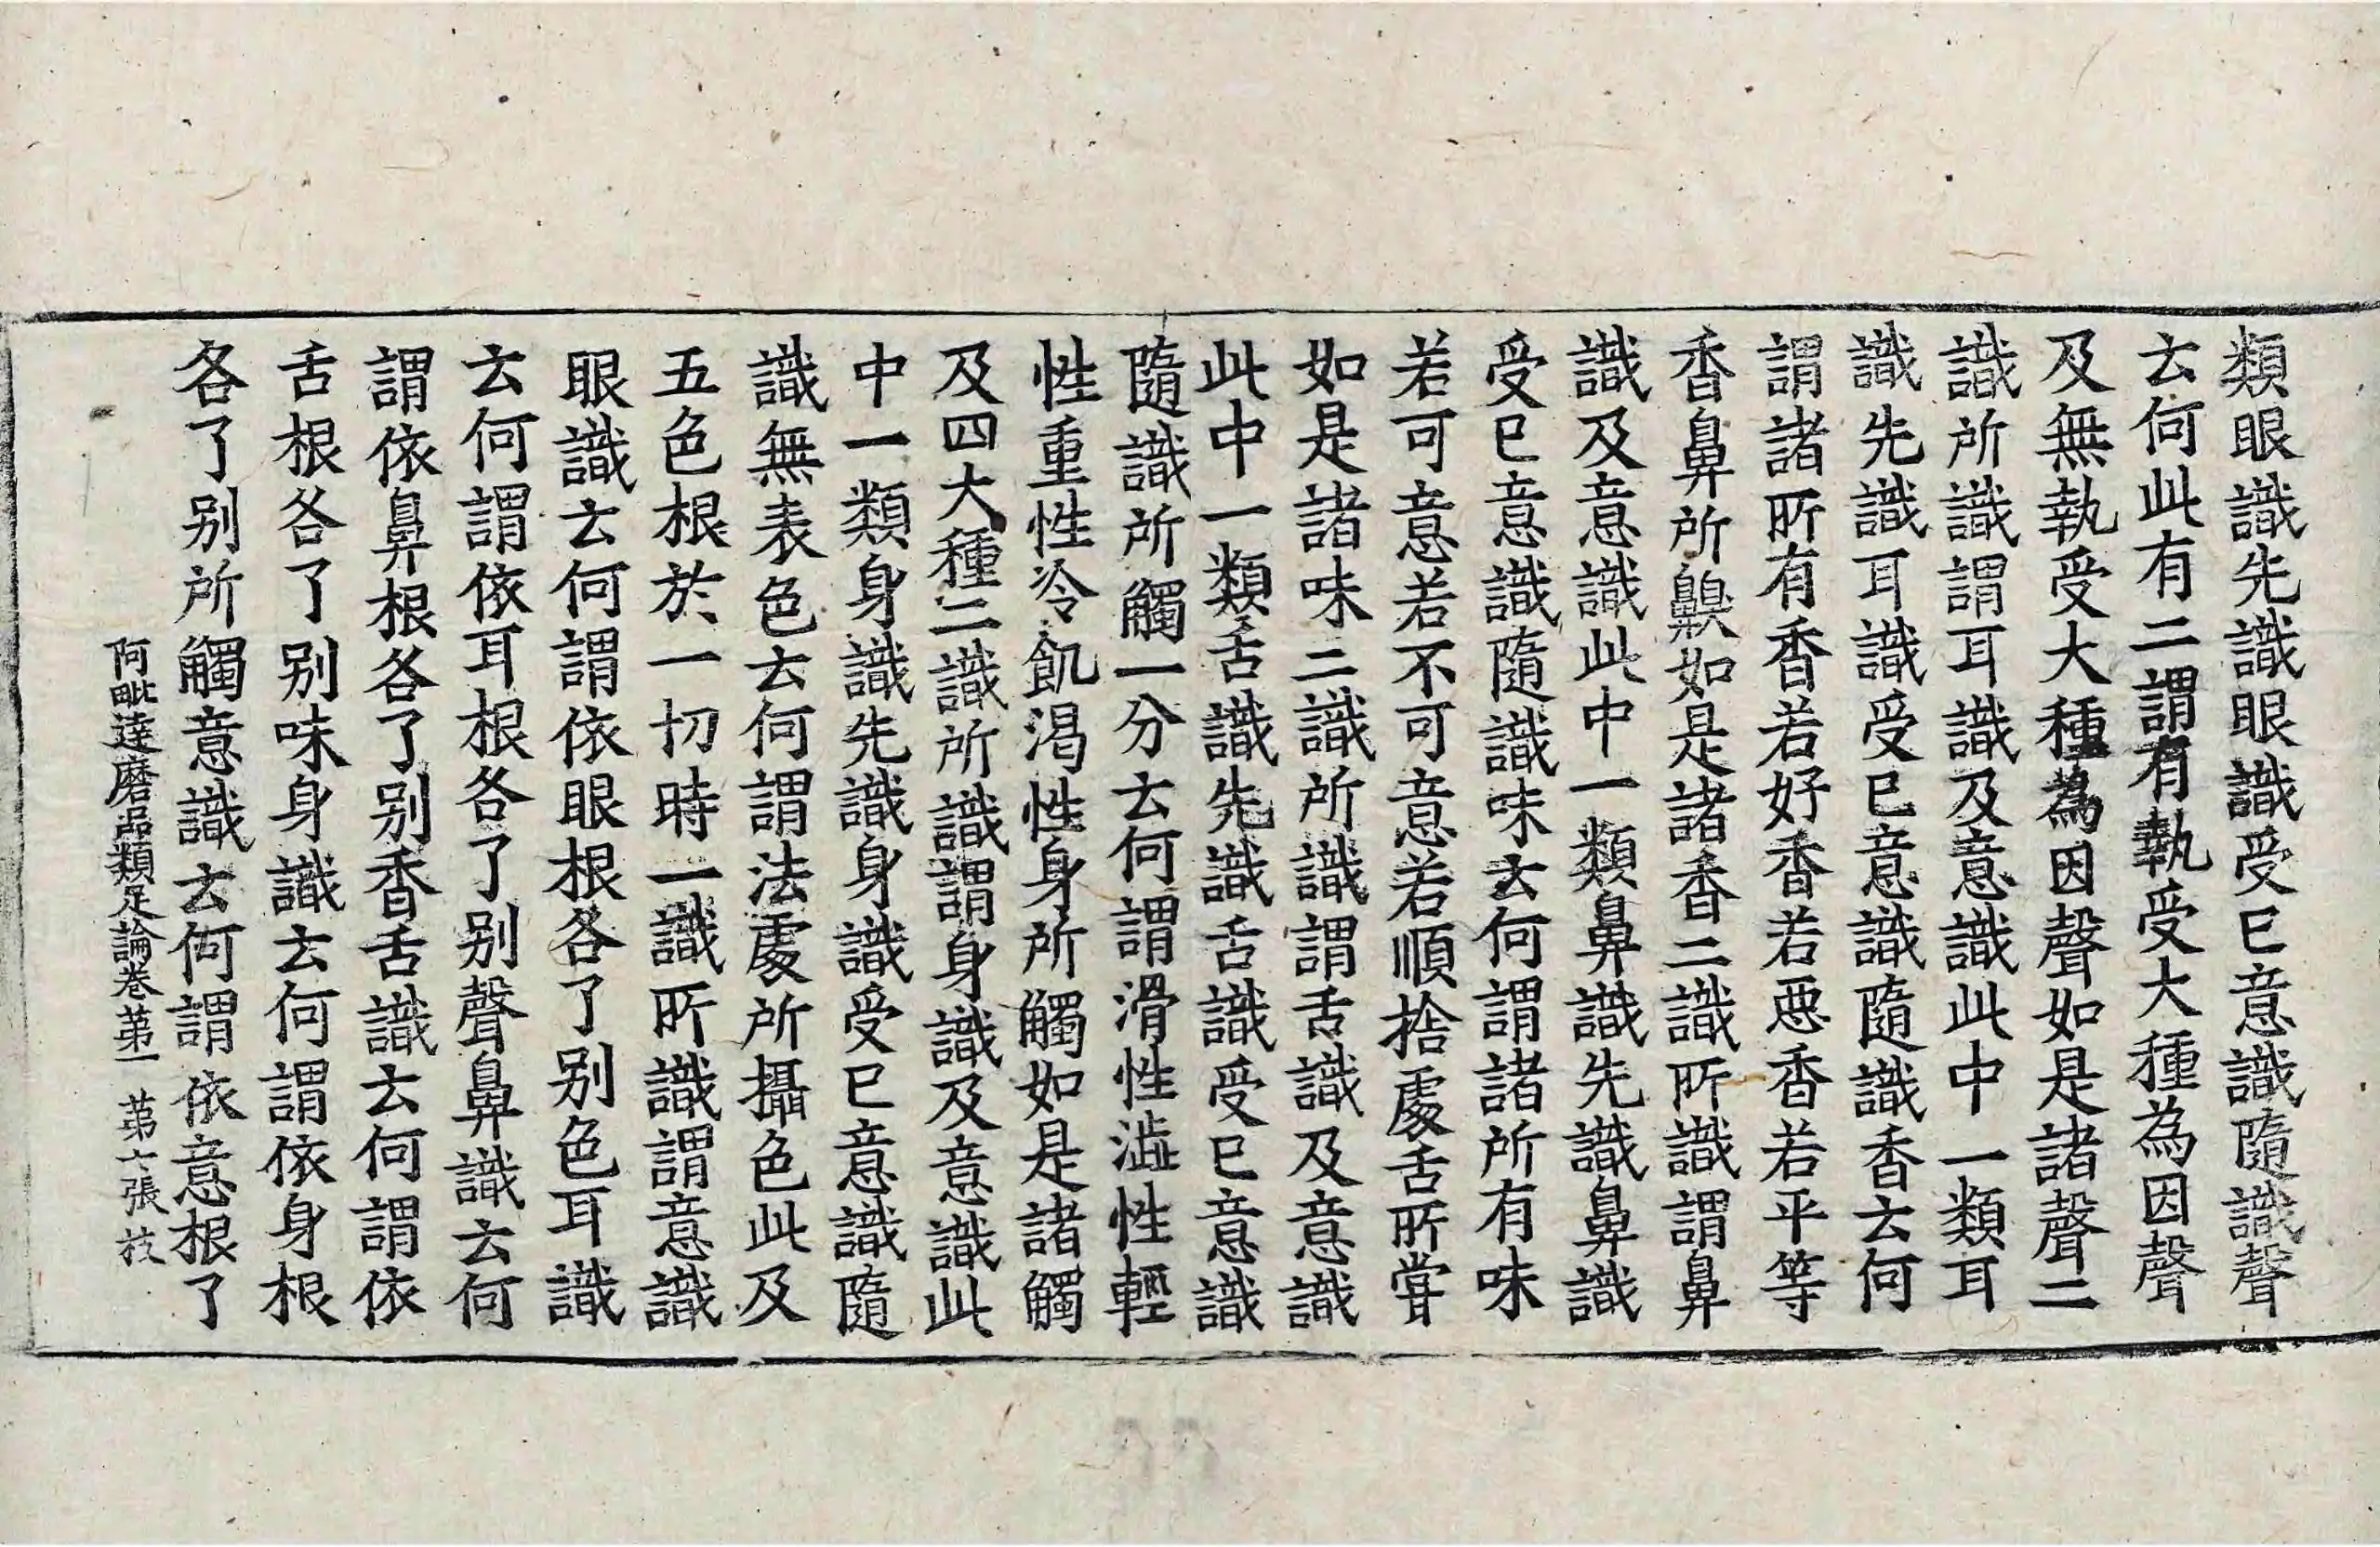 類眼識先識眼識受已意識隨識聲
云何此有二謂有執受大種為因聲
及無執受大種為因聲如是諸聲二
識所識謂耳識及意識此中一類耳
識先識耳識受已意識隨識香云何
謂諸所有香若好香若惡香若平等
香鼻所齅如是諸香二識所識謂鼻
識及意識此中一類鼻識先識鼻識
受已意識隨識味云何謂諸所有味
若可意若不可意若順捨處舌所甞
如是諸味二識所識謂舌識及意識
此中一類舌識先識舌識受已意識
隨識所觸一分云何謂滑性澁性輕
性重性冷飢渴性身所觸如是諸觸
及四大種二識所識謂身識及意識此
中一類身識先識身識受已意識隨
識無表色云何謂法處所攝色此及
五色根於一切時一識所識謂意識
眼識云何謂依眼根各了别色耳識
云何謂依耳根各了别聲鼻識云何
謂依鼻根各了别香舌識云何謂依
舌根各了别味身識云何謂依身根
各了别所觸意識云何謂依意根了
阿毗達磨品類足論卷苐一 苐七張 技